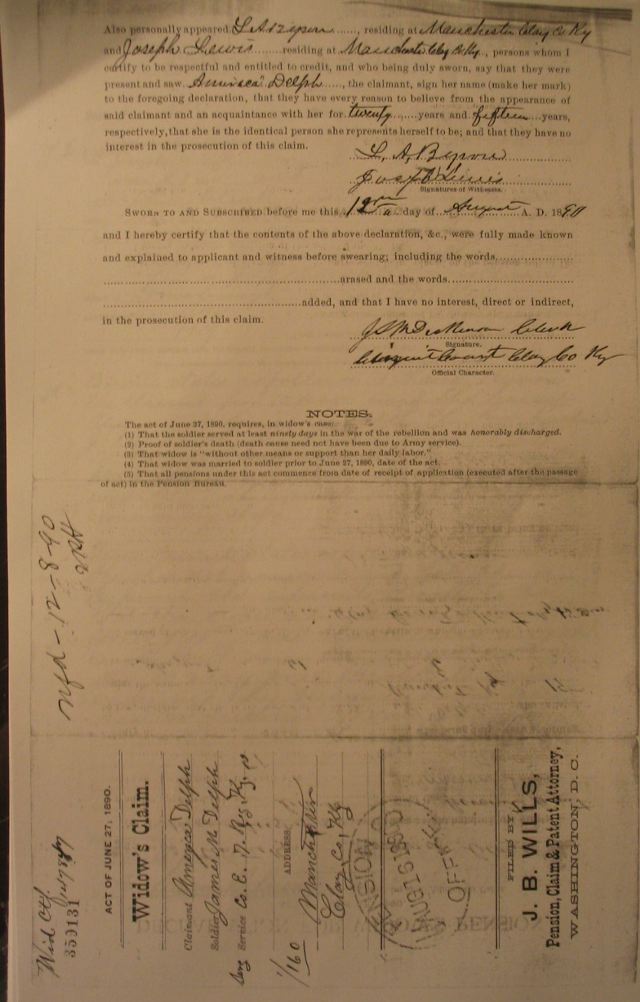 Also personally appeared L. A. Byron, residing at Manchester Clay Co Ky
and Joseph Lewis residing at Manchester Clay Co Ky, persons whom I
certify to be respectful and entitled to credit, and who being duly sworn, say that they were
present and saw America Delph, the claimant, sign her name (make her mark)
to the foregoing declaration, that they have every reason to believe from the appearance of
said claimant and an acquaintance with her for twenty years and fifteen years,
respectively, that she is the identical person she represents herself to be; and that they have no
interest in the prosecution of this claim.
Joseph Lewis
Signatures of Witnesses.
SWORN TO AND SUBSCRIBED before me this day of August A. D. 1890
and I hereby certify that the contents of the above declaration, &c., were fully made known
and explained to applicant and witness before swearing; including the words
erased and the words
added, and that I have no interest, direct or indirect,
in the prosecution of this claim.
Clerk
Signature.
Circuit Court Clay Co Ky
Official Character.
NOTES.
The act of June 27, 1890, requires, in widow's case:
(1) That the soldier served at least ninety days in the war of the rebellion and was honorably discharged.
(2) Proof of soldier's death (death cause need not have been due to Army service).
(3) That widow is "without other means or support than her daily labor."
(4) That widow was married to soldier prior to June 27, 1890, date of the act.
(5) That all pensions under this act commence from date of receipt of application (executed after the passage
of act) in the Pension Bureau.
12-8-90
Wid Ctf.
359131
ACT OF JUNE 27, 1890.
Widow's Claim.
Claimant America Delph
Soldier James M Delph
Service Co. E. 7. Ky.
1/160
ADDRESS
Manchester
Clay Co, Ky
PENSION
AUG 18 1890
OFFICE
FILED BY
J. B. WILLS,
Pension, Claim & Patent Attorney,
WASHINGTON, D.C.